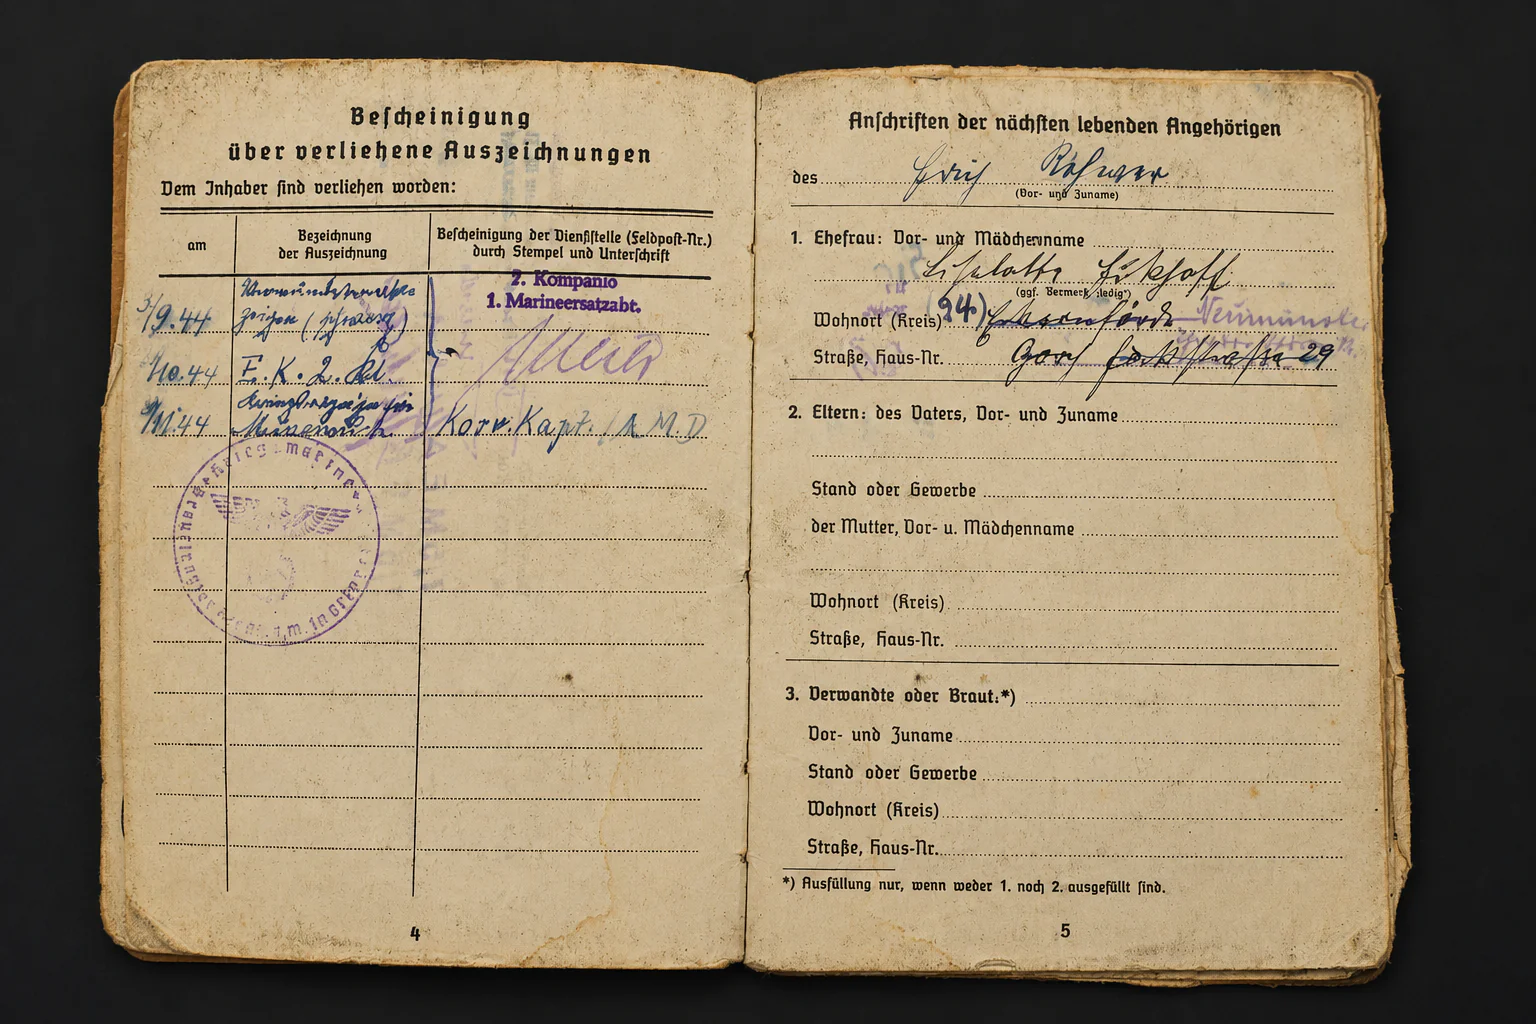 Bescheinigung
über verliehene Auszeichnungen
Dem Inhaber sind verliehen worden:
am
Bezeichnung
der Auszeichnung
Bescheinigung der Dienststelle (Feldpost-Nr.)
durch Stempel und Unterschrift
2. Kompanie
1. Marineersatzabt.
9.44
zeichen (schwarz)
10.44 E.K. 2. Kl.
11.44
Korv. Kapt.
4
Anschriften der nächsten lebenden Angehörigen
des Erich Rohwer
(Vor- und Zuname)
1. Ehefrau: Vor- und Mädchenname
Liselotte
(ggf. Vermerk „ledig“)
Wohnort (Kreis) (24) Eckernförde Neumünster
Straße, Haus-Nr. Gorch Fock Strasse 29
2. Eltern: des Vaters, Vor- und Zuname
Stand oder Gewerbe
der Mutter, Vor- u. Mädchenname
Wohnort (Kreis)
Straße, Haus-Nr.
3. Verwandte oder Braut:*)
Vor- und Zuname
Stand oder Gewerbe
Wohnort (Kreis)
Straße, Haus-Nr.
*) Ausfüllung nur, wenn weder 1. noch 2. ausgefüllt sind.
5